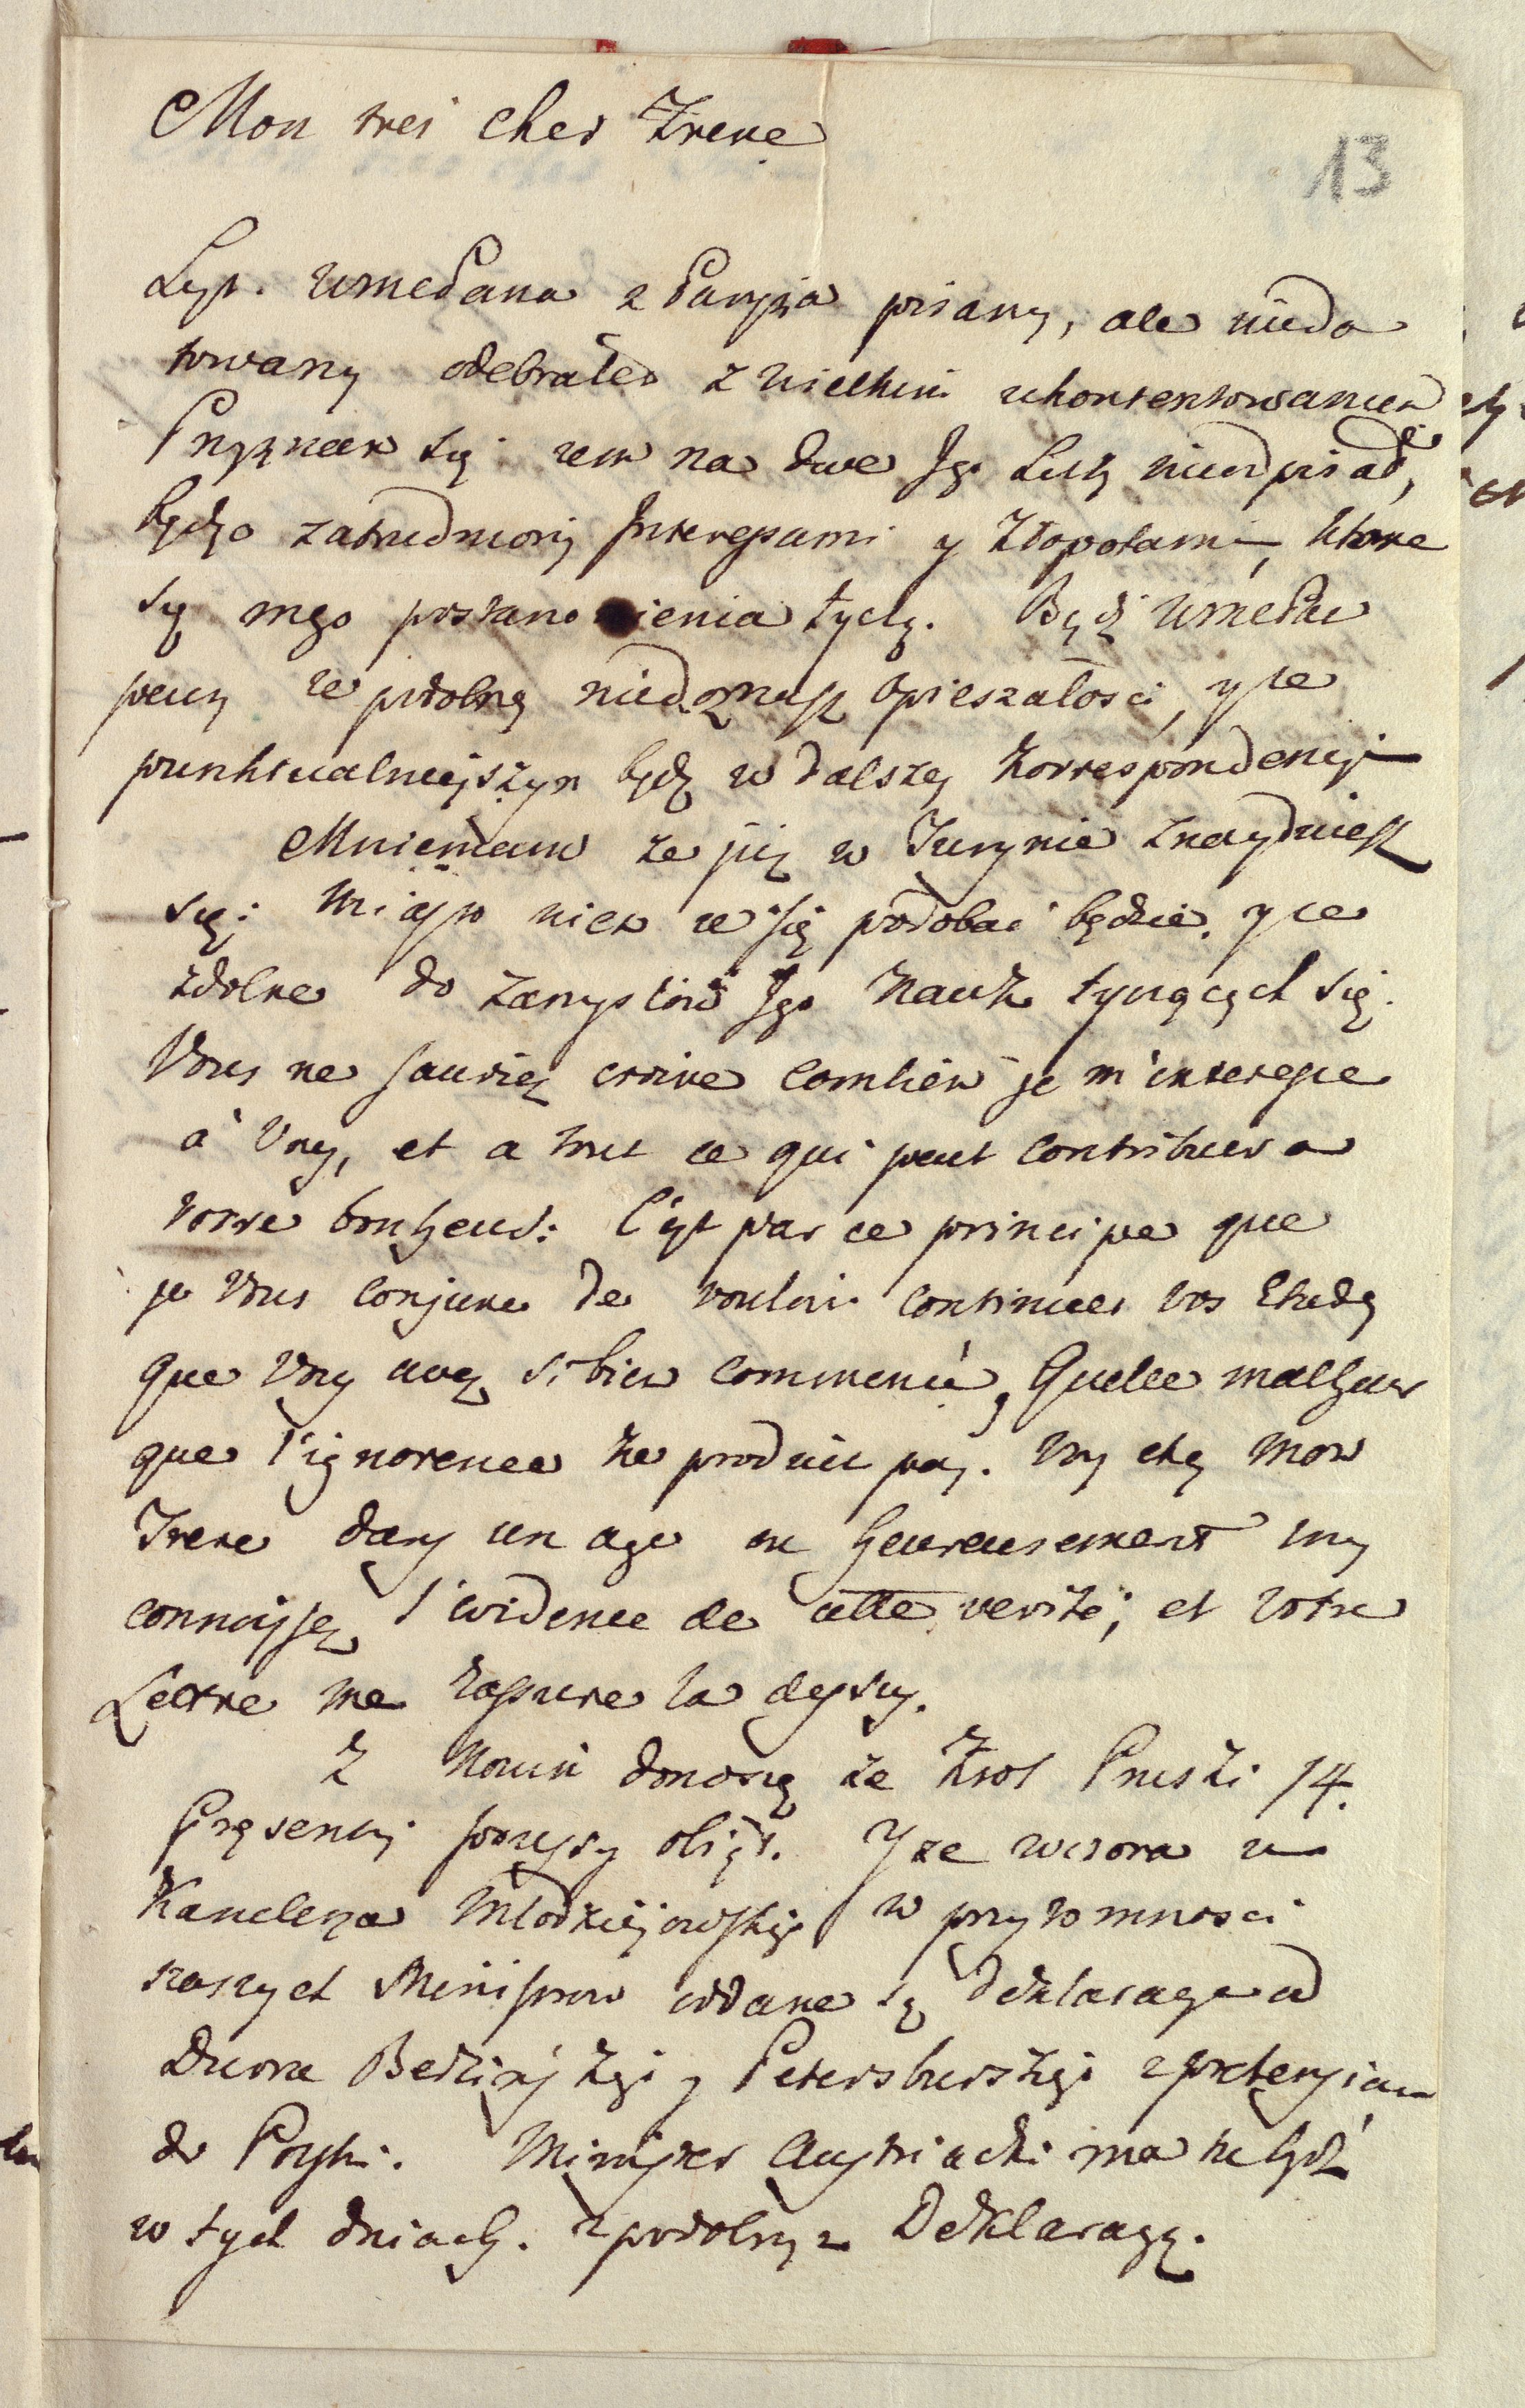 Mon tres cher Frere
13
List WmcPana z Paryża pisany, ale nieda
towany odebrałem z wielkim ukontentowaniem
Przyznam się żem na dwa Jgo Listy nieodpisał,
będąc zatrudniony Interessami y kłopotami, ktore
się mego postanowienia tyczą. Bądź WmcPan
pewny ze podobney niedoznasz opieszałości, y ze
punktualnieyszym będę w dalszey korrespondencyi
Mniemam ze już w Turynie znaydujesz
się; Miasto niem ze się podobać będzie, y ze
zdolne do zamysłow Jgo Nauk tyczących się.
Vous ne sauriez croire combien je m'interesse
à Vous, et a tout ce qui peut contribuer a
votre bonheur: C'est par ce principe que
je Vous conjure de vouloir continuer vos Etudes
que Vous avez si bien commencé, Quelle malheur
que l'ignorence ne produit pas. Vous etes mon
Frere dans un age ou heureusement vous
connoissez l'evidence de cette verité; et votre
Lettre me rassure la dessus.
Z Nowin donoszę że Krol Pruski 14.
Pręsenty Prussy obiął. Y ze wczora u
Kanclerza Młodziejowskigo w przytomnosci
naszych Ministrow oddane są Deklaracye od
Dwora Berlinskgo y Petersburskgo z pretensiami
do Polski. Minister Austriacki ma tu bydź
w tych dniach z podobną Deklaracyą.